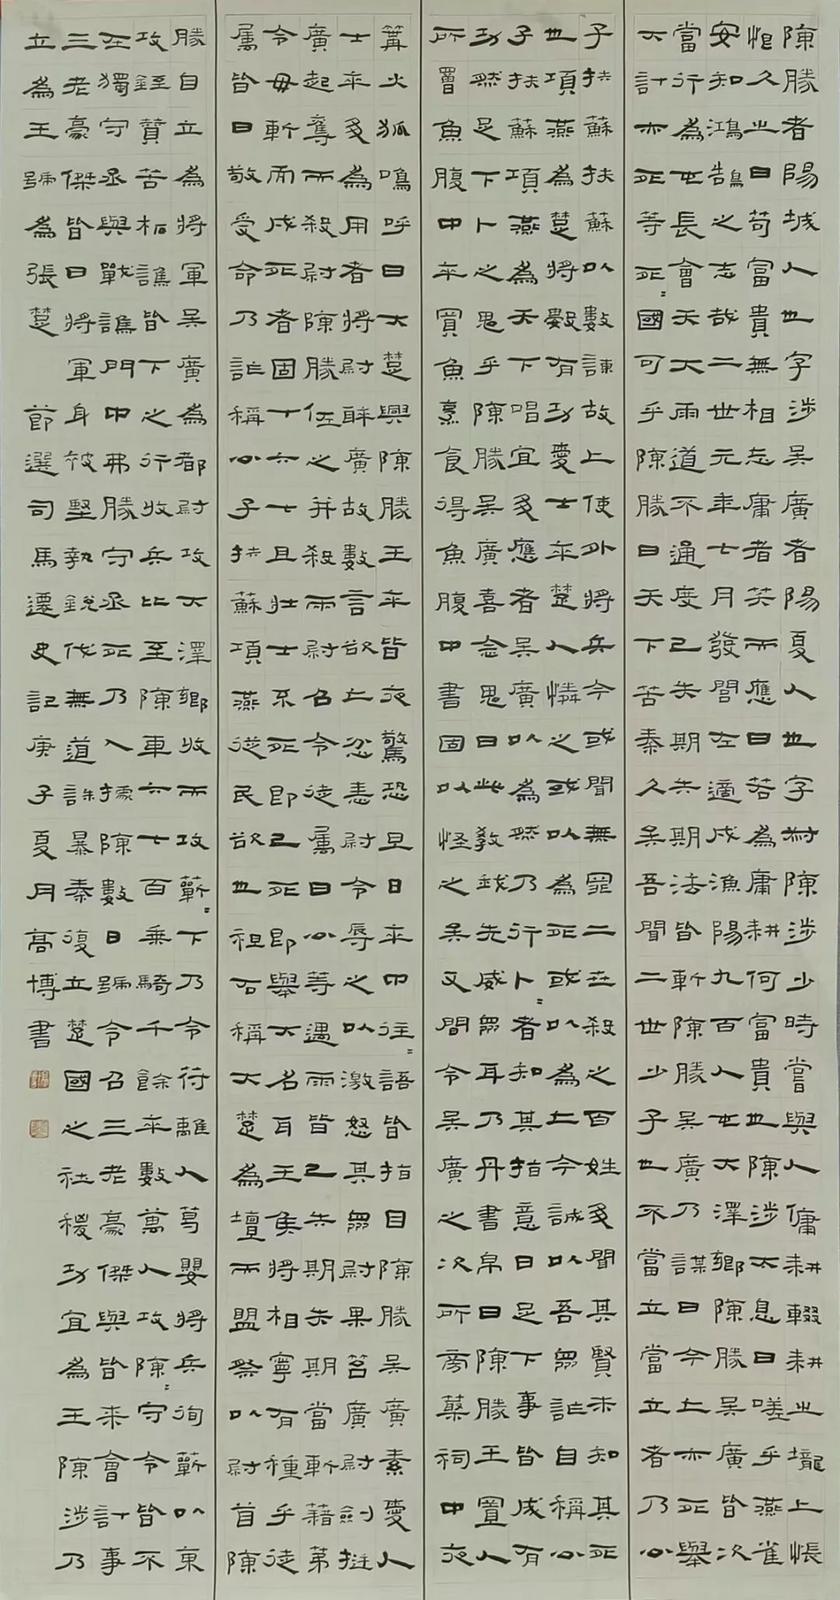 陳勝者陽城人也字涉吳廣者陽夏人也字叔陳涉少時嘗與人傭耕輟耕之壠上悵
恨久之曰苟富貴無相忘庸者笑而應曰若為庸耕何富貴也陳涉太息曰嗟乎燕雀
安知鴻鵠之志哉二世元年七月發閭左適戍漁陽九百人屯大澤鄉陳勝吳廣皆次
當行為屯長會天大雨道不通度已失期失期法皆斬陳勝吳廣乃謀曰今亡亦死舉
大計亦死等死=國可乎陳勝曰天下苦秦久矣吾聞二世少子也不當立當立者乃公
子扶蘇扶蘇以數諫故上使外將兵今或聞無罪二世殺之百姓多聞其賢未知其死
也項燕為楚將數有功愛士卒楚人憐之或以為死或以為亡今誠以吾眾詐自稱公
子扶蘇項燕為天下唱宜多應者吳廣以為然乃行卜=者知其指意曰足下事皆成有
功然足下卜之鬼乎陳勝吳廣喜念鬼曰此教我先威眾耳乃丹書帛曰陳勝王置人
所罾魚腹中卒買魚烹食得魚腹中書固以怪之矣又間令吳廣之次所旁叢祠中夜
篝火狐鳴呼曰大楚興陳勝王卒皆夜驚恐旦日卒中往=語皆指目陳勝吳廣素愛人
士卒多為用者將尉醉廣故數言欲亡忿恚尉令辱之以激怒其眾尉果笞廣尉劍挺
廣起奪而殺尉陳勝佐之并殺兩尉召令徒屬曰公等遇雨皆已失期失期當斬藉第
令毋斬而戍死者固十六七且壯士不死即已死即舉大名耳王侯將相寧有種乎徒
屬皆曰敬受命乃詐稱公子扶蘇項燕從民欲也袒右稱大楚為壇而盟祭以尉首陳
勝自立為將軍吳廣為都尉攻大澤鄉收而攻蘄=下乃令符離人葛嬰將兵徇蘄以東
攻銍酇苦柘譙皆下之行收兵比至陳車六七百乘騎千餘卒數萬人攻陳=守令皆不
在獨守丞與戰譙門中弗勝守丞死乃入據陳數日號令召三老豪傑與皆來會計事
三老豪傑皆曰將軍身被堅執銳伐無道誅暴秦復立楚國之社稷功宜為王陳涉乃
立為王號為張楚 節選司馬遷史記庚子夏月高博書